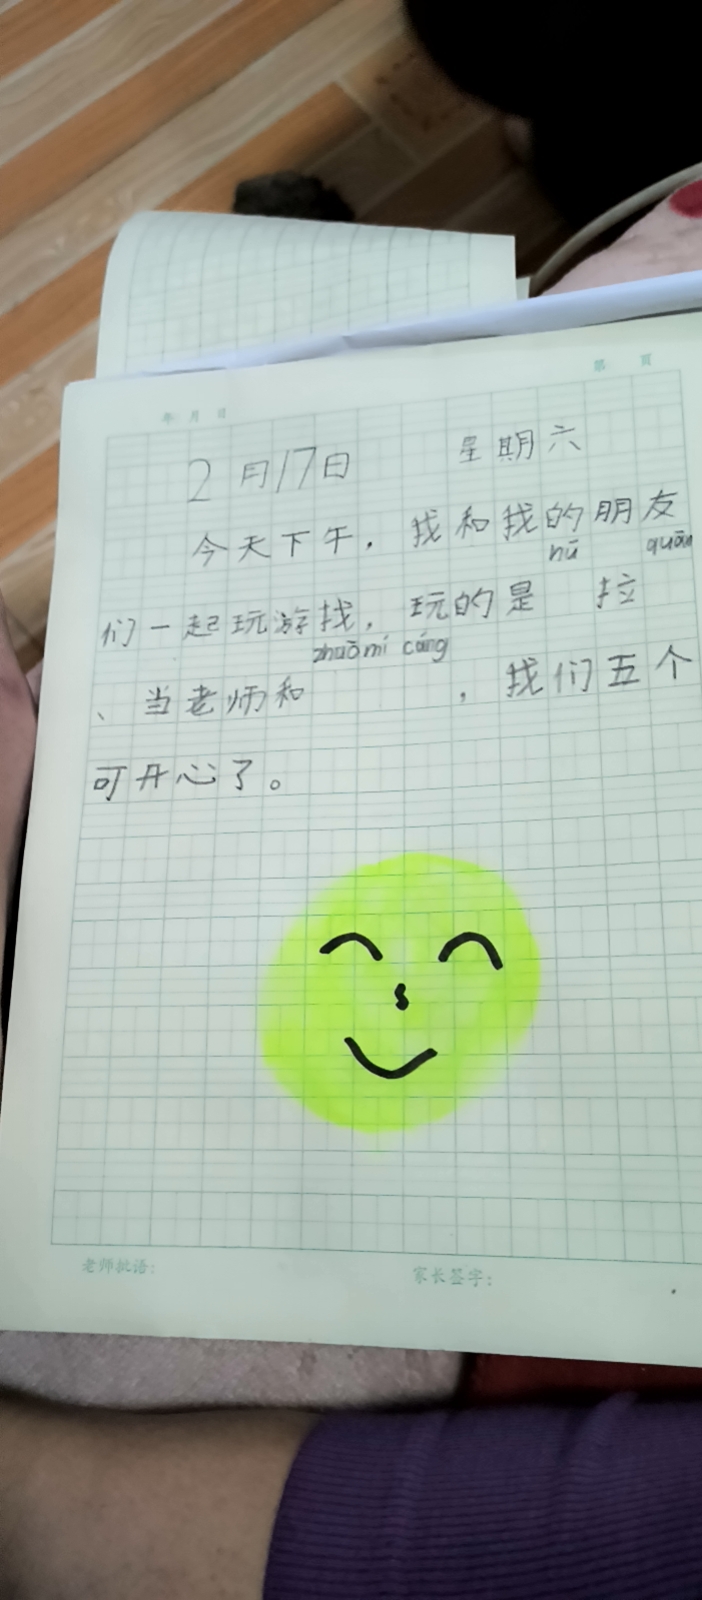 年 月 日
第 页
2月17日 星期六
今天下午，找和找的朋友
nǚ quān
们一起玩游找，玩的是 拉
zhuōmí cáng
、当老师和 ，找们五个
可开心了。
老师批语：
家长签字：